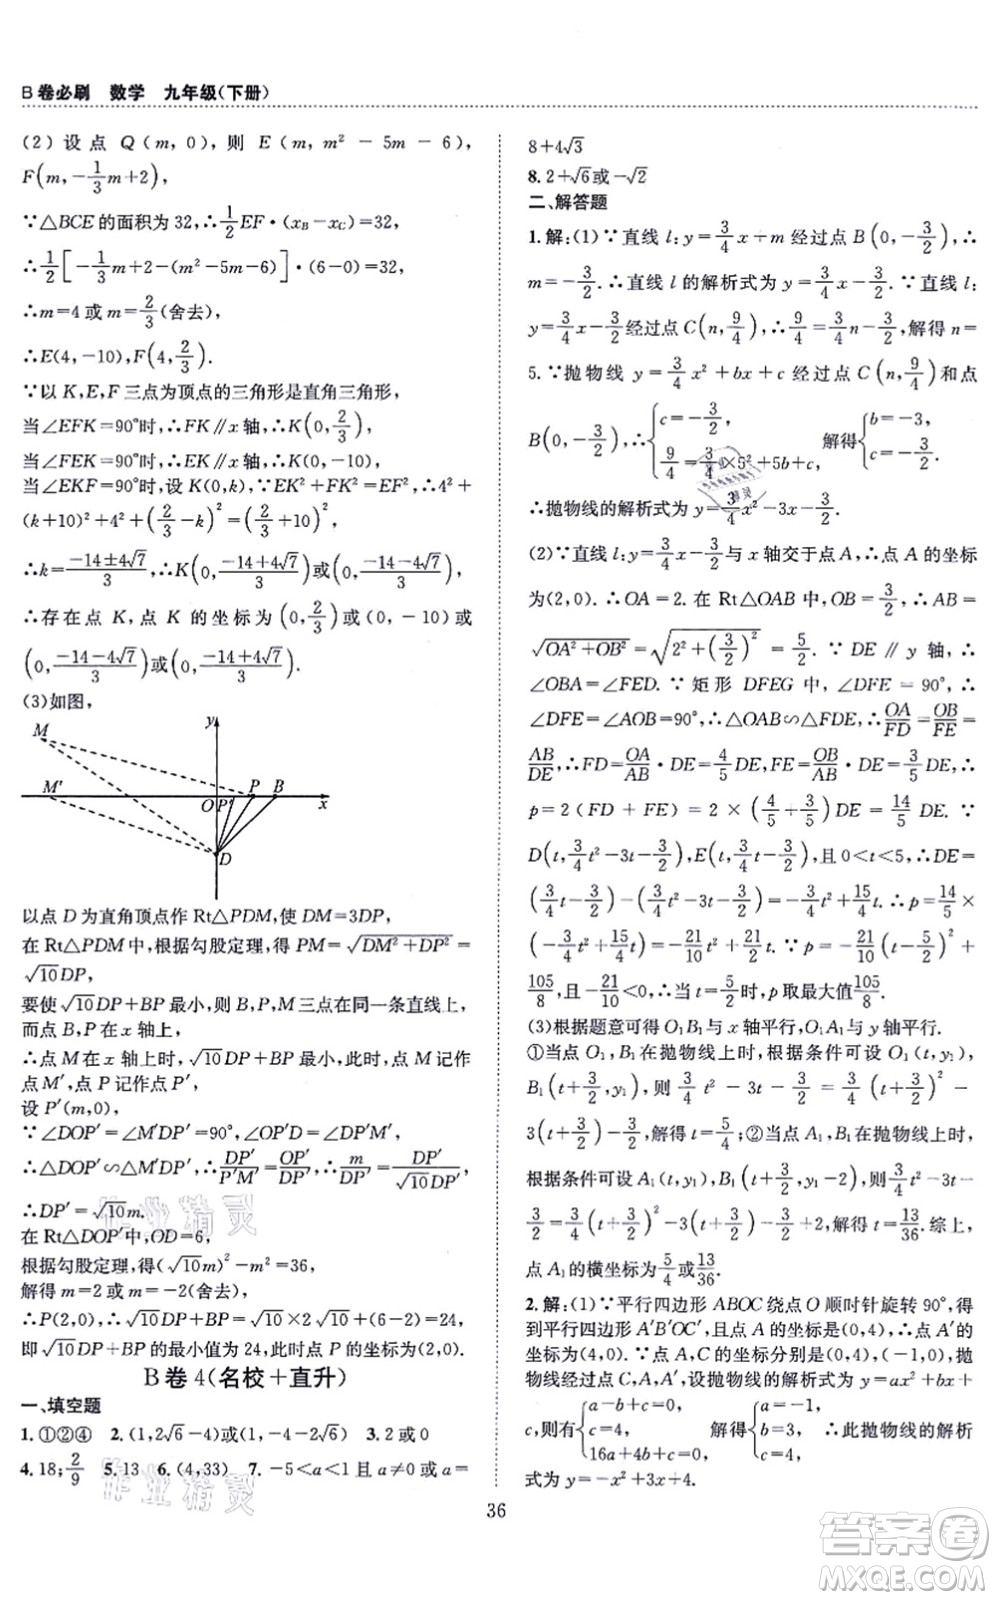 B卷必刷 数学 九年级(下册)
(2)设点 Q(m,0),则 E(m,m²-5m-6),
F(m,-1/3m+2),
∵△BCE的面积为32,∴1/2EF·(x_B-x_C)=32,
∴1/2[-1/3m+2-(m²-5m-6)]·(6-0)=32,
∴m=4或m=2/3(舍去),
∴E(4,-10),F(4,2/3).
∵以K,E,F三点为顶点的三角形是直角三角形,
当∠EFK=90°时,∴FK∥x轴,∴K(0,2/3),
当∠FEK=90°时,∴EK∥x轴,∴K(0,-10),
当∠EKF=90°时,设K(0,k),∵EK²+FK²=EF²,∴4²+
(k+10)²+4²+(2/3-k)²=(2/3+10)²,
∴k=(-14±4√7)/3,∴K(0,(-14+4√7)/3)或(0,(-14-4√7)/3),
∴存在点K,点K的坐标为(0,2/3)或(0,-10)或
(0,(-14-4√7)/3)或(0,(-14+4√7)/3).
(3)如图,
M
y
M′
O P′ P B x
D
以点D为直角顶点作Rt△PDM,使DM=3DP,
在Rt△PDM中,根据勾股定理,得PM=√(DM²+DP²)=
√10DP,
要使√10DP+BP最小,则B,P,M三点在同一条直线上,
而点B,P在x轴上,
∴点M在x轴上时,√10DP+BP最小,此时,点M记作
点M′,点P记作点P′,
设P′(m,0),
∵∠DOP′=∠M′DP′=90°,∠OP′D=∠DP′M′,
∴△DOP′∽△M′DP′,∴DP′/P′M′=OP′/DP′,∴m/DP′=DP′/(√10DP′),
∴DP′=√10m.
在Rt△DOP′中,OD=6,
根据勾股定理,得(√10m)²-m²=36,
解得m=2或m=-2(舍去),
∴P(2,0),√10DP+BP=√10×2√10+4=24,
即√10DP+BP的最小值为24,此时P(2,0).
B卷4(名校+直升)
一、填空题
1.①②④ 2.(1,2√6-4)或(1,-4-2√6) 3.2或0
4.18;2/9 5.13 6.(4,33) 7.-5<a<1且a≠0或a=
8+4√3
8.2+√6或-√2
二、解答题
1.解:(1)∵直线l:y=3/4x+m经过点B(0,-3/2),∴
m=-3/2.∴直线l的解析式为y=3/4x-3/2.∵直线l:
y=3/4x-3/2经过点C(n,9/4),∴9/4=3/4n-3/2,解得n=
5.∵抛物线y=3/4x²+bx+c经过点C(n,9/4)和点
B(0,-3/2),∴{c=-3/2, 9/4=3/4×5²+5b+c, 解得{b=-3, c=-3/2.
∴抛物线的解析式为y=3/4x²-3x-3/2.
(2)∵直线l:y=3/4x-3/2与x轴交于点A,∴点A的坐标
为(2,0).∴OA=2.在Rt△OAB中,OB=3/2,∴AB=
√(OA²+OB²)=√(2²+(3/2)²)=5/2.∵DE∥y轴,∴
∠OBA=∠FED.∵矩形DFEG中,∠DFE=90°,∴
∠DFE=∠AOB=90°,∴△OAB∽△FDE,∴OA/FD=OB/FE=
AB/DE,∴FD=OA/AB·DE=4/5DE,FE=OB/AB·DE=3/5DE,∴
p=2(FD+FE)=2×(4/5+3/5)DE=14/5DE.∵
D(t,3/4t²-3t-3/2),E(t,3/4t-3/2),且0<t<5,∴DE=
(3/4t-3/2)-(3/4t²-3t-3/2)=-3/4t²+15/4t.∴p=14/5×
(-3/4t²+15/4t)=-21/10t²+21/2t.∵p=-21/10(t-5/2)²+
105/8,且-21/10<0,∴当t=5/2时,p取最大值105/8.
(3)根据题意可得O₁B₁与x轴平行,O₁A₁与y轴平行.
①当点O₁,B₁在抛物线上时,根据条件可设O₁(t,y₁),
B₁(t+3/2,y₁),则3/4t²-3t-3/2=3/4(t+3/2)²-
3(t+3/2)-3/2,解得t=5/4;②当点A₁,B₁在抛物线上时,
根据条件可设A₁(t,y₁),B₁(t+3/2,y₁-2),3/4t²-3t-
3/2=3/4(t+3/2)²-3(t+3/2)-3/2+2,解得t=13/36.综上,
点A₁的横坐标为5/4或13/36.
2.解:(1)∵平行四边形ABOC绕点O顺时针旋转90°,得
到平行四边形A′B′OC′,点A的坐标为(0,4),∴点A′的
坐标为(4,0).∵点A,C的坐标分别是(0,4),(-1,0),抛
物线经过点C,A,A′,设抛物线的解析式为y=ax²+bx+
c,则有{a-b+c=0, c=4, 16a+4b+c=0, 解得{a=-1, b=3, c=4. ∴此抛物线的解析
式为y=-x²+3x+4.
36
作业精灵
作业精灵
答案卷